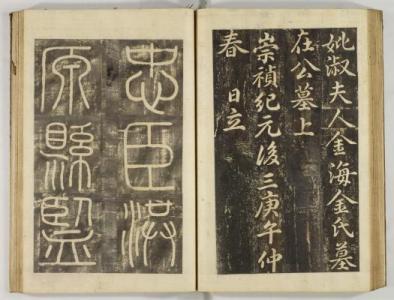 妣淑夫人金海金氏墓
在公墓上
崇禎紀元後三庚午仲
春 日立
忠臣洪
原縣監